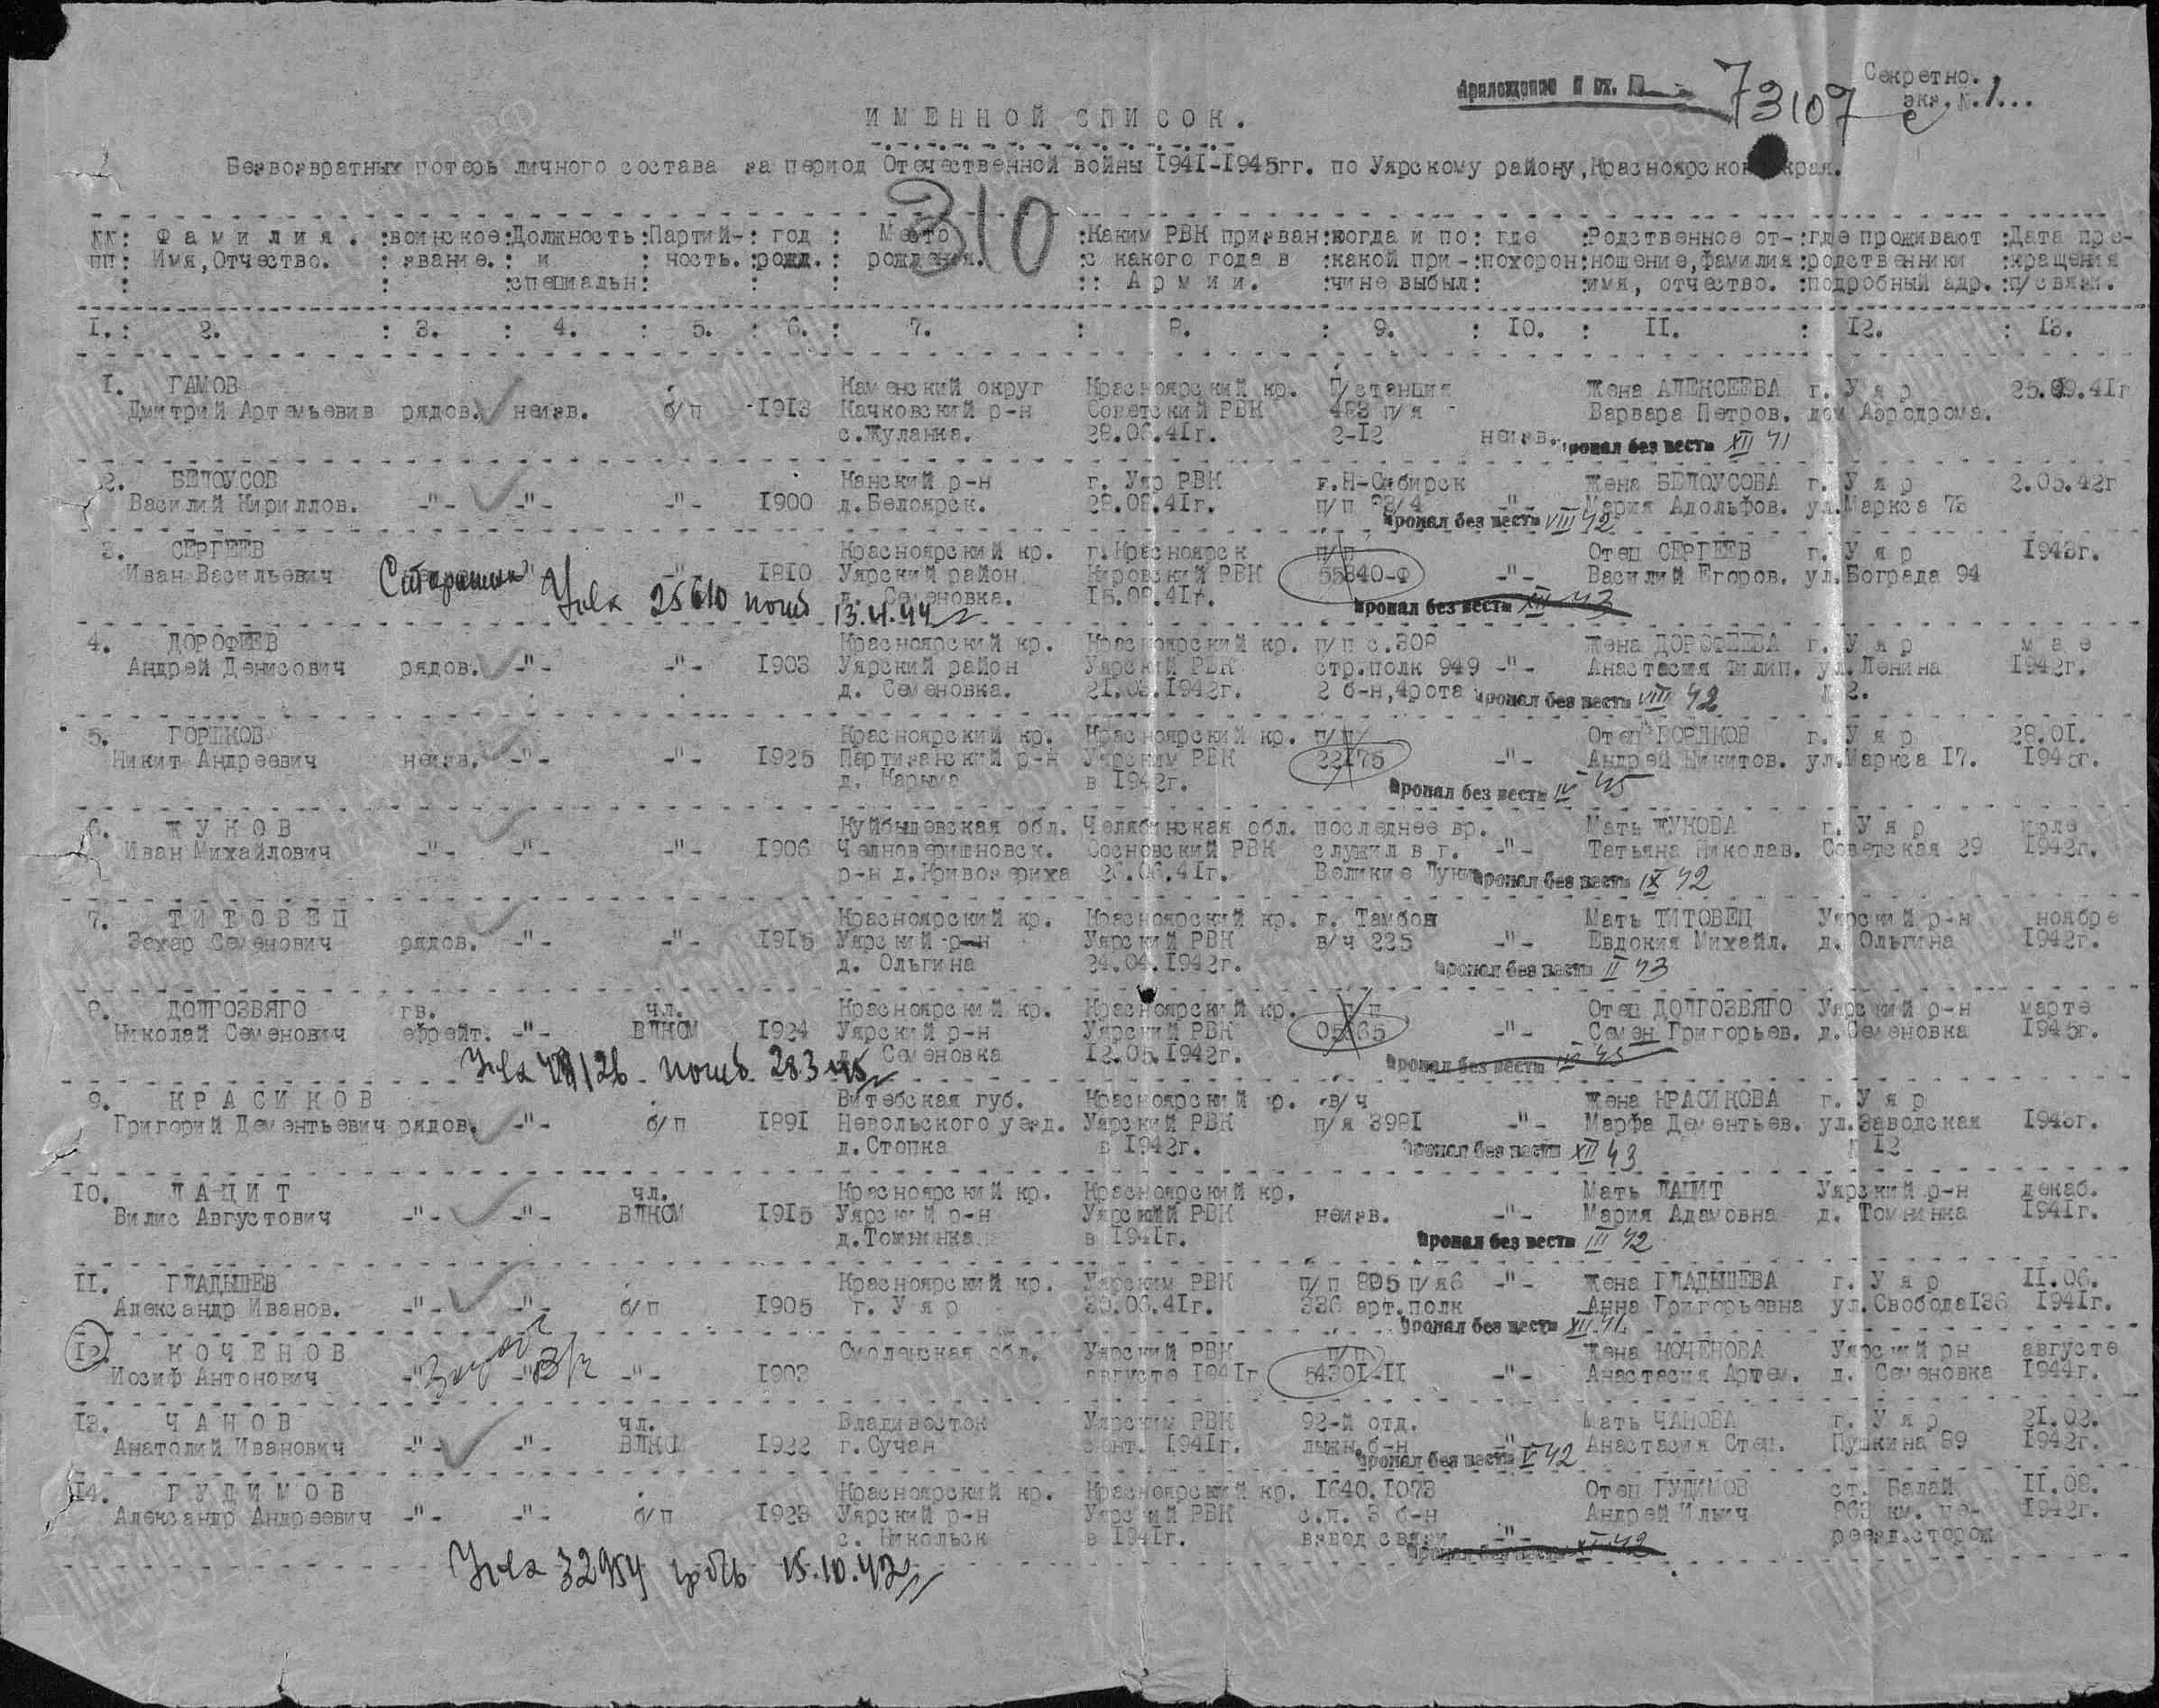 Приложение к вх. № 73107
Секретно.
экз. №.1...
ИМЕННОЙ СПИСОК.
Безвозвратных потерь личного состава за период Отечественной войны 1941-1945гг. по Уярскому району, Красноярского края.
310
№№: Фамилия. :воинское:Должность:Партий-: год : Место :Каким РВК призван:когда и по: где :Родственное от-:где проживают :Дата пре-
пп: Имя,Отчество. : звание. : и : ность. :рожд. : рождения. :с какого года в :какой при-:похорон:ношение,фамилия:родственники :кращения
: : :специальн: : : :: Армии. :чине выбыл: :имя, отчество. :подробный адр. :п/связи.
1. : 2. : 3. : 4. : 5. : 6. : 7. : 8. : 9. : 10. : 11. : 12. : 13.
1. ГАМОВ Каменский округ Красноярский кр. П/станция Жена АЛЕКСЕЕВА г. Уяр 25.09.41г
Дмитрий Артемьевив рядов. неизв. б/п -1913 Качковский р-н Советский РВК 483 п/я Варвара Петров. дом Аэродрома.
с.Жуланка. 28.06.41г. 2-12 неизв. пропал без вести XII 41
2. БЕЛОУСОВ Канский р-н г. Уяр РВК г.Н-Сибирск Жена БЕЛОУСОВА г. Уяр 2.05.42г
Василий Кириллов. -"- -"- -"- 1900 д.Белоярск. 28.08.41г. п/п 93/4 -"- Мария Адольфов. ул.Маркса 73
пропал без вести VIII 42
3. СЕРГЕЕВ Красноярский кр. г.Красноярск п/п Отец СЕРГЕЕВ г. Уяр 1943г.
Иван Васильевич -"- 1910 Уярский район Кировский РВК 55840-Ф -"- Василий Егоров. ул.Бограда 94
д. Семеновка. 15.09.41г. пропал без вести XII 43
25610 погиб 13.4.44
4. ДОРОФЕЕВ Красноярский кр. Красноярский кр. п/п с.308 Жена ДОРОФЕЕВА г. Уяр мае
Андрей Денисович рядов. -"- -"- 1903 Уярский район Уярский РВК стр.полк 949 -"- Анастасия Филип. ул.Ленина 1942г.
д. Семеновка. 21.03.1942г. 2 б-н,4рота пропал без вести VIII 42 № 2.
5. ГОРЛКОВ Красноярский кр. Красноярский кр. п/п Отец ГОРЛКОВ г. Уяр 28.01.
Никит Андреевич неизв. -"- -"- 1925 Партизанский р-н Уярским РВК 22175 -"- Андрей Никитов. ул.Маркса 17. 1945г.
д. Нарыма в 1942г. пропал без вести IV 45
6. ЖУКОВ Куйбышевская обл. Челябинская обл. последнее вр. Мать ЖУКОВА г. Уяр июле
Иван Михайлович -"- -"- -"- 1906 Челновершновск. Сосновский РВК служил в г. -"- Татьяна Николав. Советская 29 1942г.
р-н д.Кривозериха 26.06.41г. Великие Луки пропал без вести IX 42
7. ТИТОВЕЦ Красноярский кр. Красноярский кр. г. Тамбов Мать ТИТОВЕЦ Уярский р-н ноябре
Захар Семенович рядов. -"- -"- 1915 Уярский р-н Уярский РВК в/ч 225 -"- Евдокия Михайл. д. Ольгина 1942г.
д. Ольгина 24.04.1942г. пропал без вести II 43
8. ДОЛГОЗВЯГО гв. чл. Красноярский кр. Красноярский кр. п/п Отец ДОЛГОЗВЯГО Уярский р-н марте
Николай Семенович ефрейт. -"- ВЛКСМ 1924 Уярский р-н Уярский РВК 05165 -"- Семен Григорьев. д.Семеновка 1945г.
д. Семеновка 12.05.1942г. пропал без вести
погиб 28.3.45
9. КРАСИКОВ Витебская губ. Красноярский кр. в/ч Жена КРАСИКОВА г. Уяр
Григорий Дементьевич рядов. -"- б/п 1891 Невольского уезд. Уярский РВК п/я 3981 -"- Марфа Дементьев. ул.Заводская 1943г.
д.Стопка в 1942г. пропал без вести XII 43 № 12
10. ЛАЦИТ чл. Красноярский кр. Красноярский кр. Мать ЛАЦИТ Уярский р-н декаб.
Вилис Августович -"- -"- ВЛКСМ 1915 Уярский р-н Уярский РВК неизв. -"- Мария Адамовна д. Томнинка 1941г.
д.Томнинка в 1941г. пропал без вести III 42
11. ГЛАДЫШЕВ Красноярский кр. Уярским РВК п/п 805 п/я6 -"- Жена ГЛАДЫШЕВА г. Уяр 11.06.
Александр Иванов. -"- -"- б/п 1905 г. Уяр 30.06.41г. 336 арт.полк Анна Григорьевна ул.Свобода136 1941г.
пропал без вести XII 41
12. КОЧЕНОВ Смоленская обл. Уярский РВК п/п Жена КОЧЕНОВА Уярский рн августе
Иосиф Антонович -"- -"- -"- 1903 августе 1941г 54301-11 -"- Анастасия Артем. д. Семеновка 1944г.
13. ЧАНОВ чл. Владивосток Уярским РВК 92-й отд. Мать ЧАНОВА г. Уяр 21.02.
Анатолий Иванович -"- -"- ВЛКСМ 1922 г.Сучан сент. 1941г. лыжн.б-н -"- Анастасия Степ. Пушкина 89 1942г.
пропал без вести V 42
14. ГУДИМОВ Красноярский кр. Красноярский кр. 1640.1073 Отец ГУДИМОВ ст. Балай 11.08.
Александр Андреевич -"- -"- б/п 1923 Уярский р-н Уярский РВК с.п. 3 б-н Андрей Ильич 963 км. пе- 1942г.
с. Никольск в 1941г. взвод связи -"- реезд.сторож
пропал без вести XI 42
32954 15.10.42